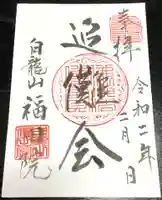 奉拝
令和二年二月 日
追儺会
白龍山 福昌院